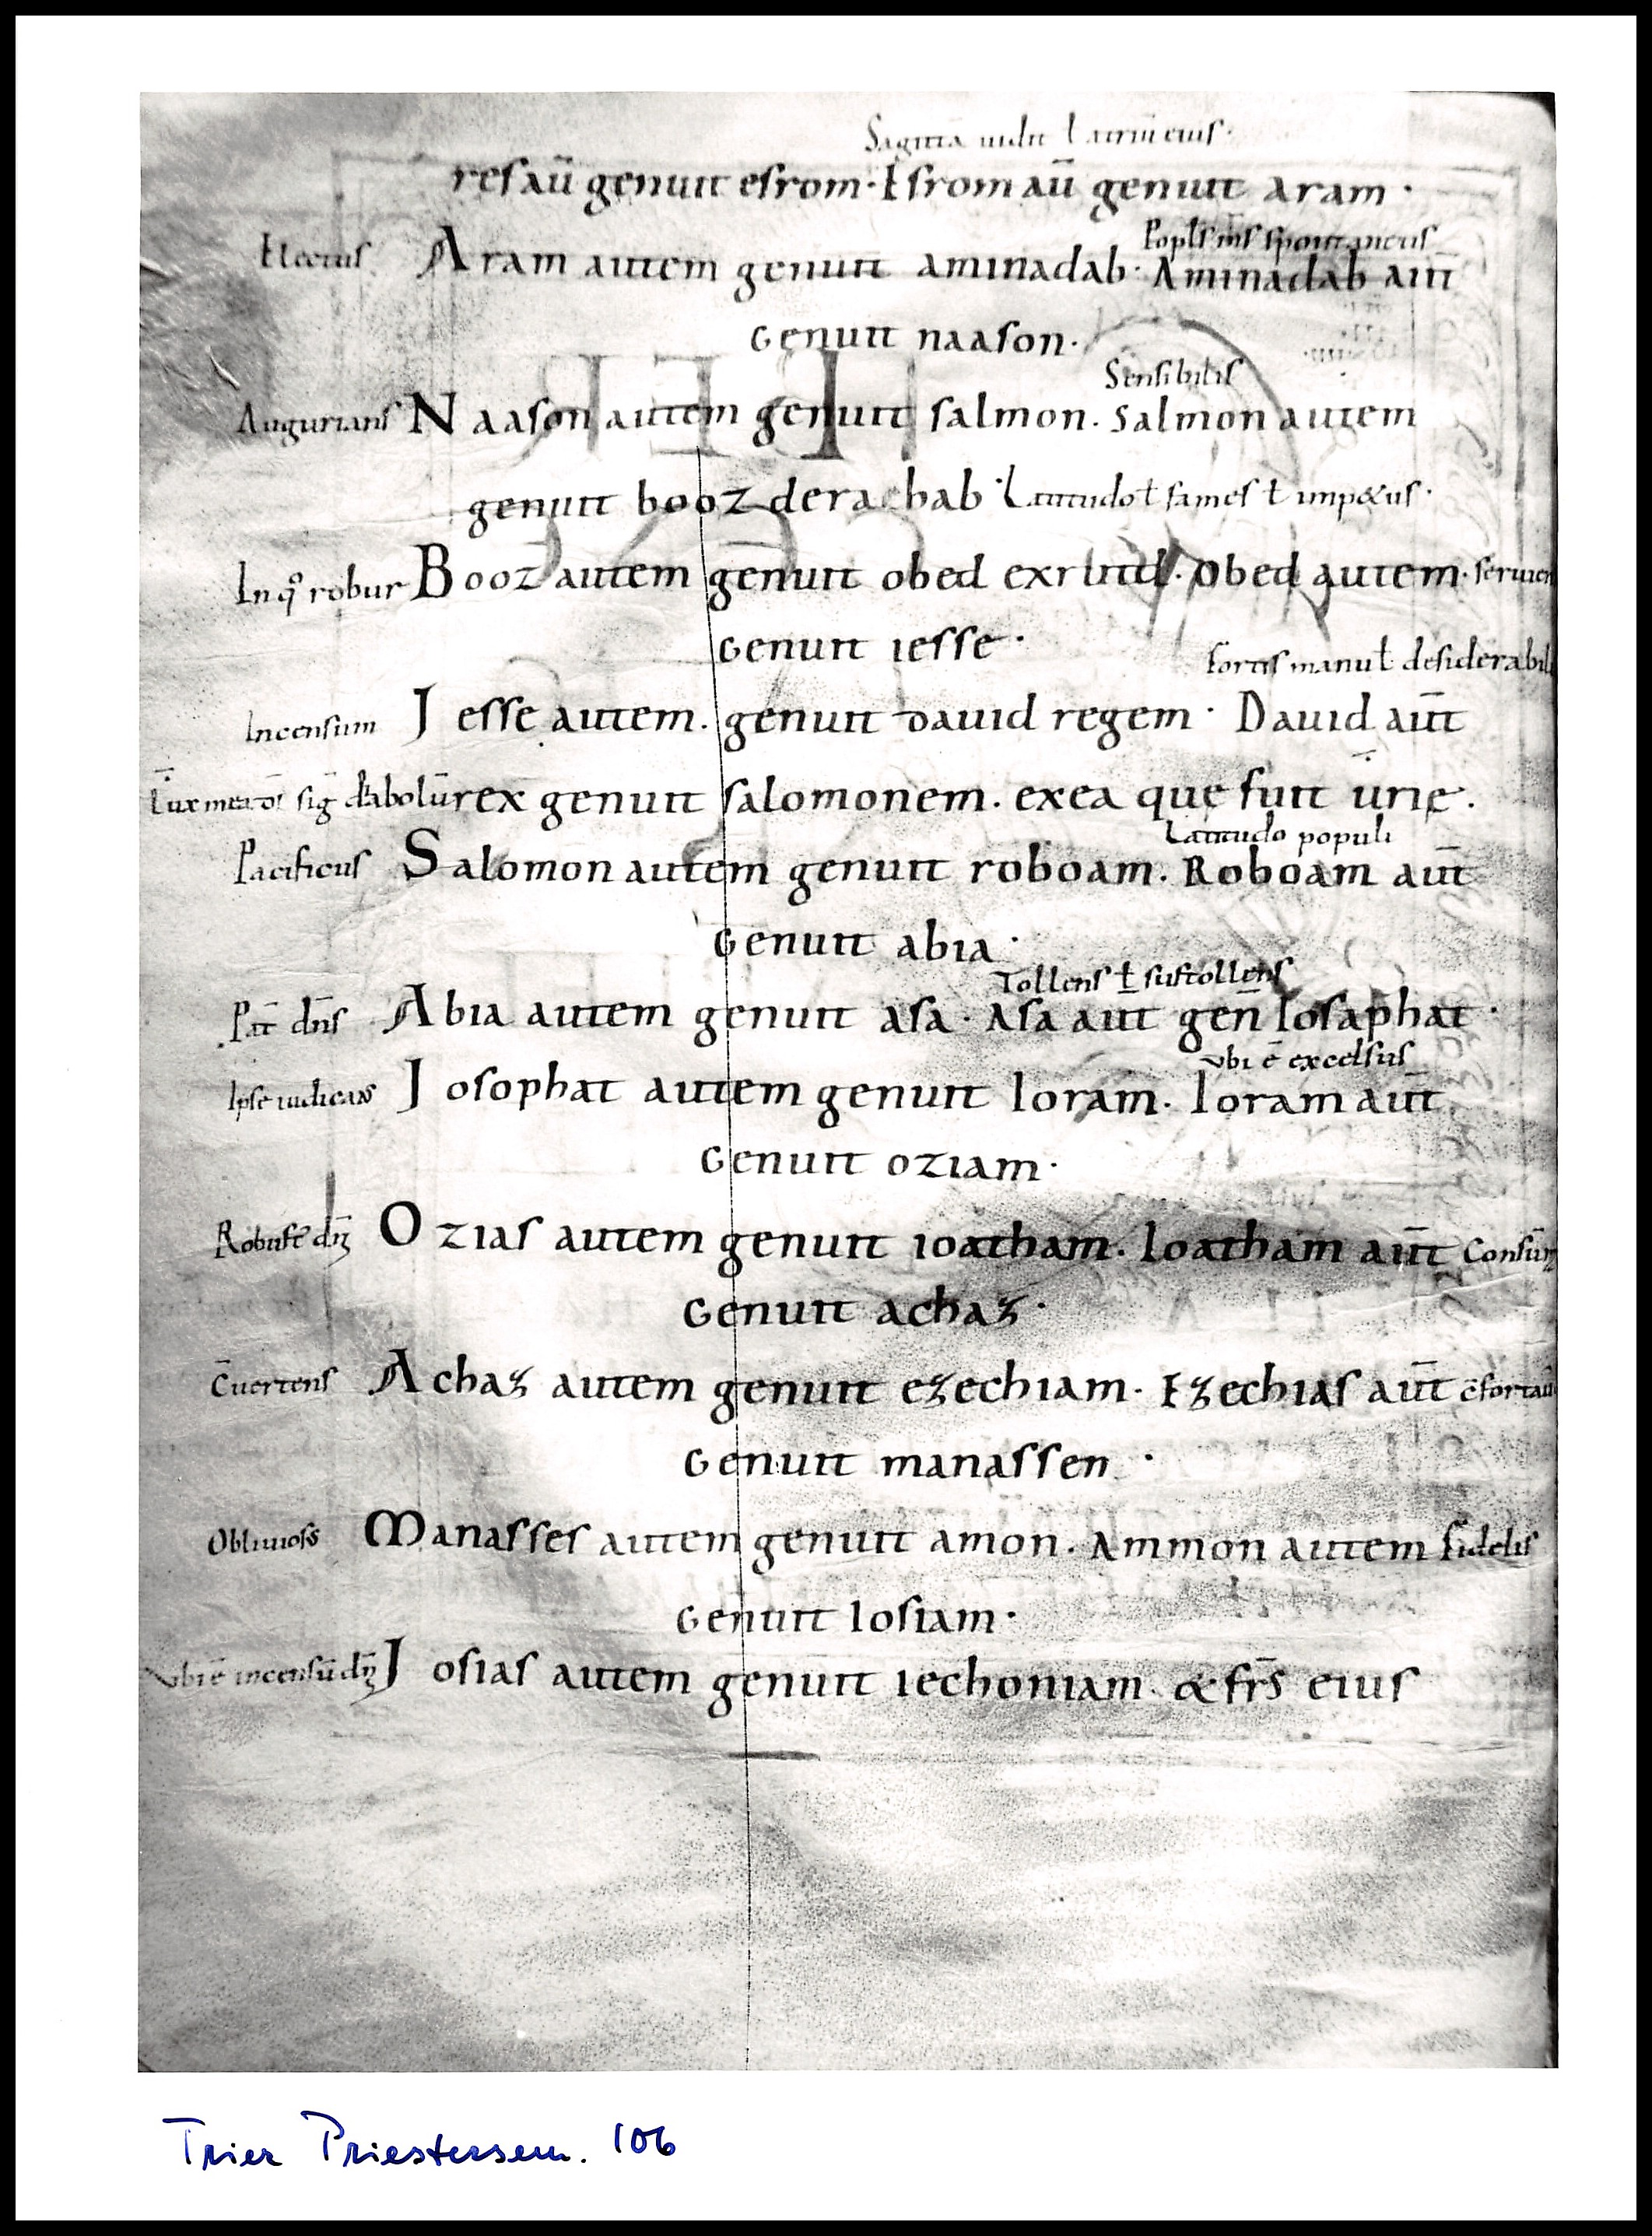 Sagitta uidit l atriũ eius·
res aū genuit esrom· Esrom aū genuit aram·
Poplꝰ mꝰ spontaneus
Electus Aram autem genuit aminadab· Aminadab aut̄
genuit naason·
Sensibilis
Augurians Naason autem genuit salmon. Salmon autem
genuit booz de rachab· Latitudo ł fames ł impetus·
In q° robur Booz autem genuit obed ex ruth. Obed autem· seruien
genuit iesse·
fortis manu ł desiderabil
Incensum Jesse autem. genuit dauid regem· Dauid aut̄
rex genuit salomonem. ex ea quę fuit urię.
Latitudo populi
Pacificus Salomon autem genuit roboam. Roboam aut̄
genuit abia·
Tollens ł sustollens
Pat̄ dn̄s Abia autem genuit asa· Asa aut gen̄ Iosaphat·
ubi ē excelsus
Ipse iudicans Josophat autem genuit Ioram. Ioram aut̄
genuit oziam·
Ozias autem genuit ioatham. Ioatham aut̄ Consūm
genuit achaz·
C̄uertens Achaz autem genuit ezechiam. Ezechias aut̄ c̄fortaū
genuit manassen·
Obliuiosꝰ Manasses autem genuit amon. Ammon autem fidelis
genuit Iosiam·
ubi ē incensū dn̄i Josias autem genuit iechoniam· & frs̄ eius
Trier Priestersem. 106